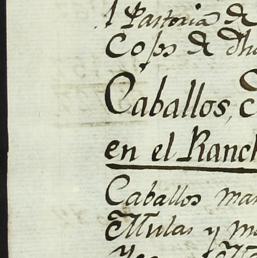 1 Pastoria de
Cofps de dho
Caballos,
en el Ranch
Caballos man
Mulas y m